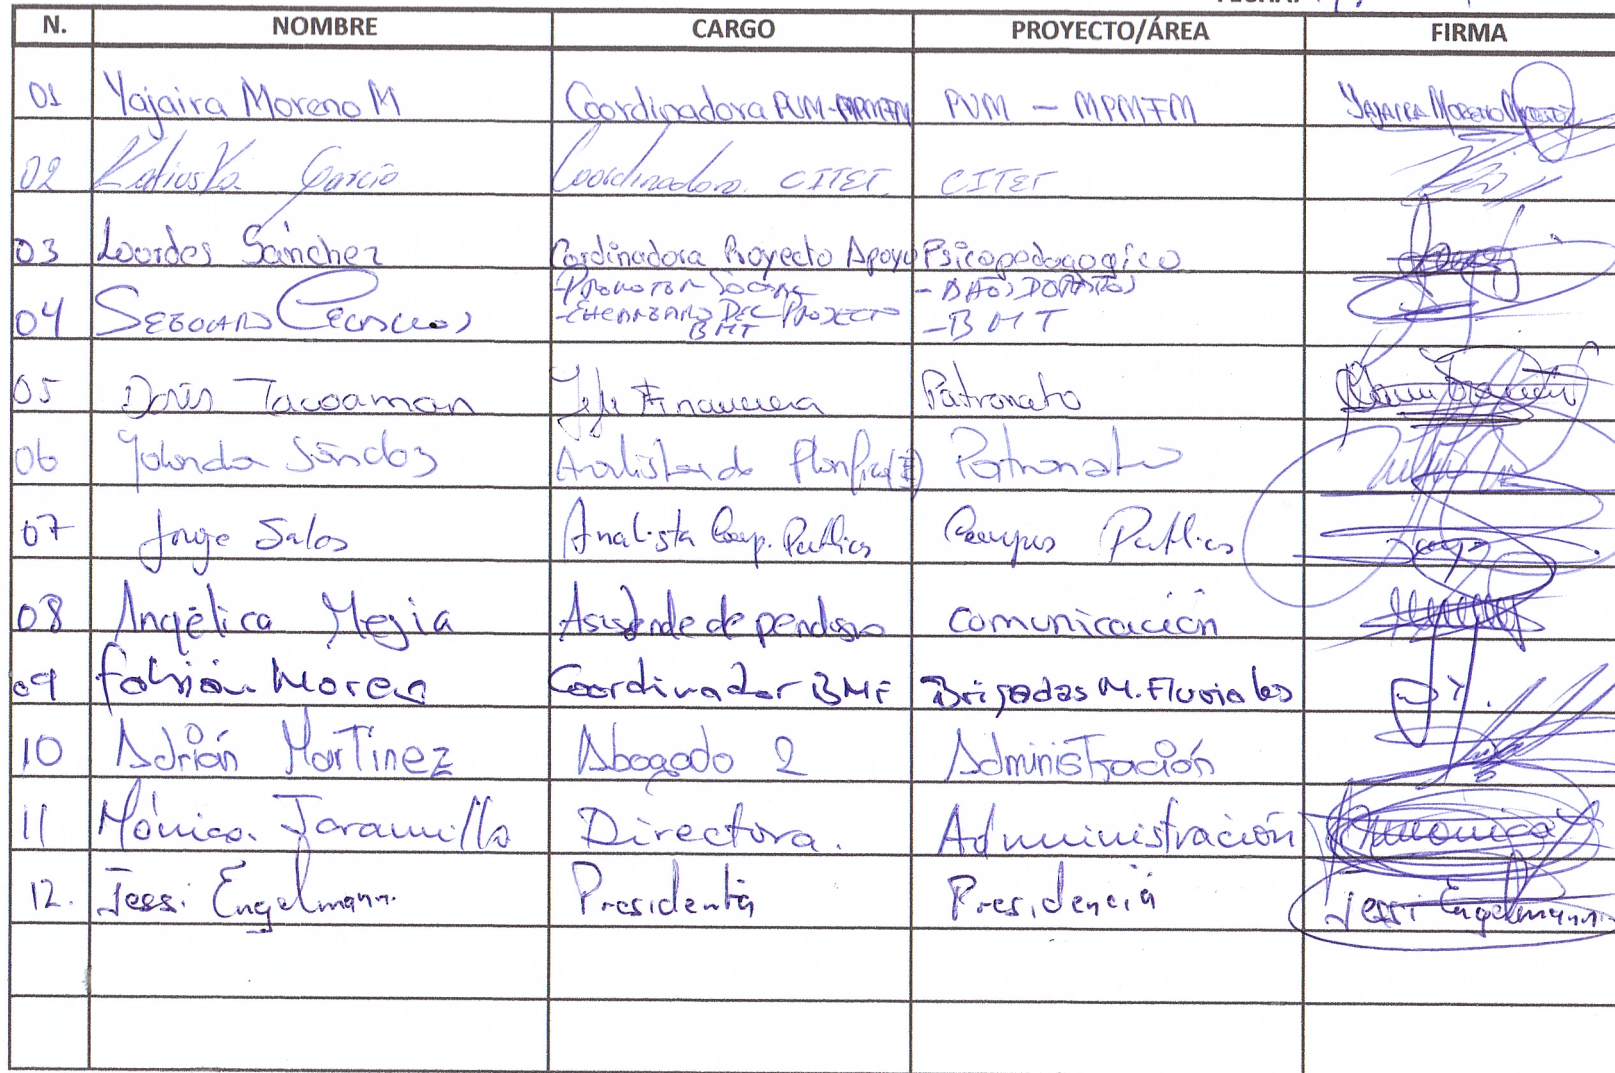 N. NOMBRE CARGO PROYECTO/ÁREA FIRMA
01 Yajaira Moreno M Coordinadora PVM-MPMFM PVM - MPMFM Yajaira Moreno
02 Katiuska García Coordinadora CITET CITET
03 Lourdes Sánchez Cordinadora Proyecto Apoyo Psicopedagogico
04 -Promotor Social
-Encargado del Proyecto BMT -BMT
05 Doris Tacoaman Jefe Financiera Patronato
06 Yolanda Analista de Patronato
07 Jorge Salas Analista Comp. Publicas Publicas
08 Angélica Mejia Asistente de comunicación
09 Fabián Coordinador BMF Brigadas M. Fluviales
10 Adrián Martínez Abogado 2 Administración
11 Mónica Jaramillo Directora. Administración Monica
12. Jessi Engelmann. Presidenta Presidencia Jessi Engelmann